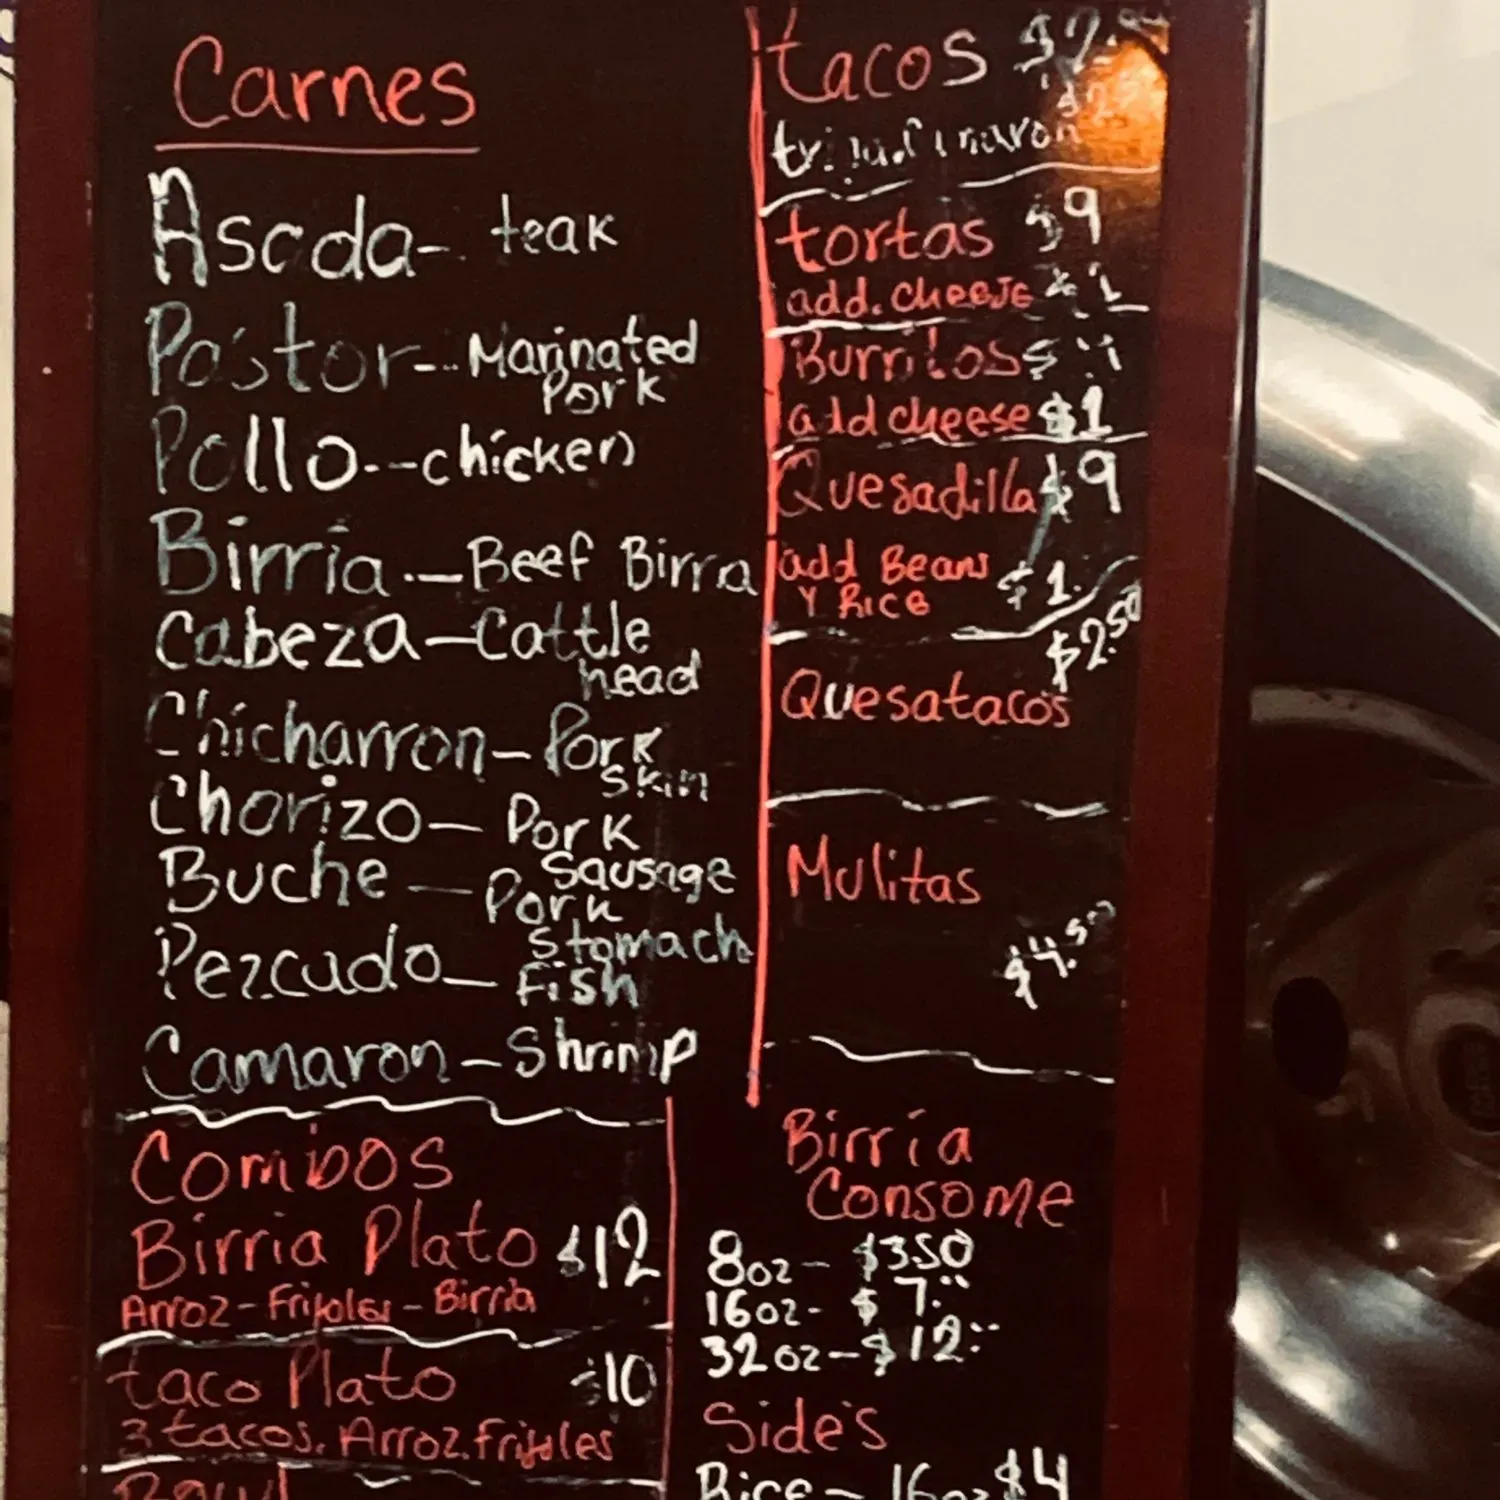 Carnes
Ascda- teak
Pastor-- Marinated
Pork
Pollo--chicken
Birria-Beef Birra
Cabeza-Cattle
head
Chicharron-Pork
Skin
Chorizo-Pork
Sausage
Buche-Pork
Stomach
Pezcudo-Fish
Camaron-Shrimp
Combos
Birria Plato $12
Arroz-Frijoles-Birria
taco Plato $10
3 tacos. Arroz. frijoles
Bowl
tacos
tortas $9
add. cheese $1
Burritos
add cheese $1
Quesadilla $9
add Beans
Y Rice $1.
$2.50
Quesatacos
Mulitas
$4.50
Birria
Consome
8oz- $3.50
16oz- $7.00
32oz-$12.00
Side's
Rice- 16oz $4